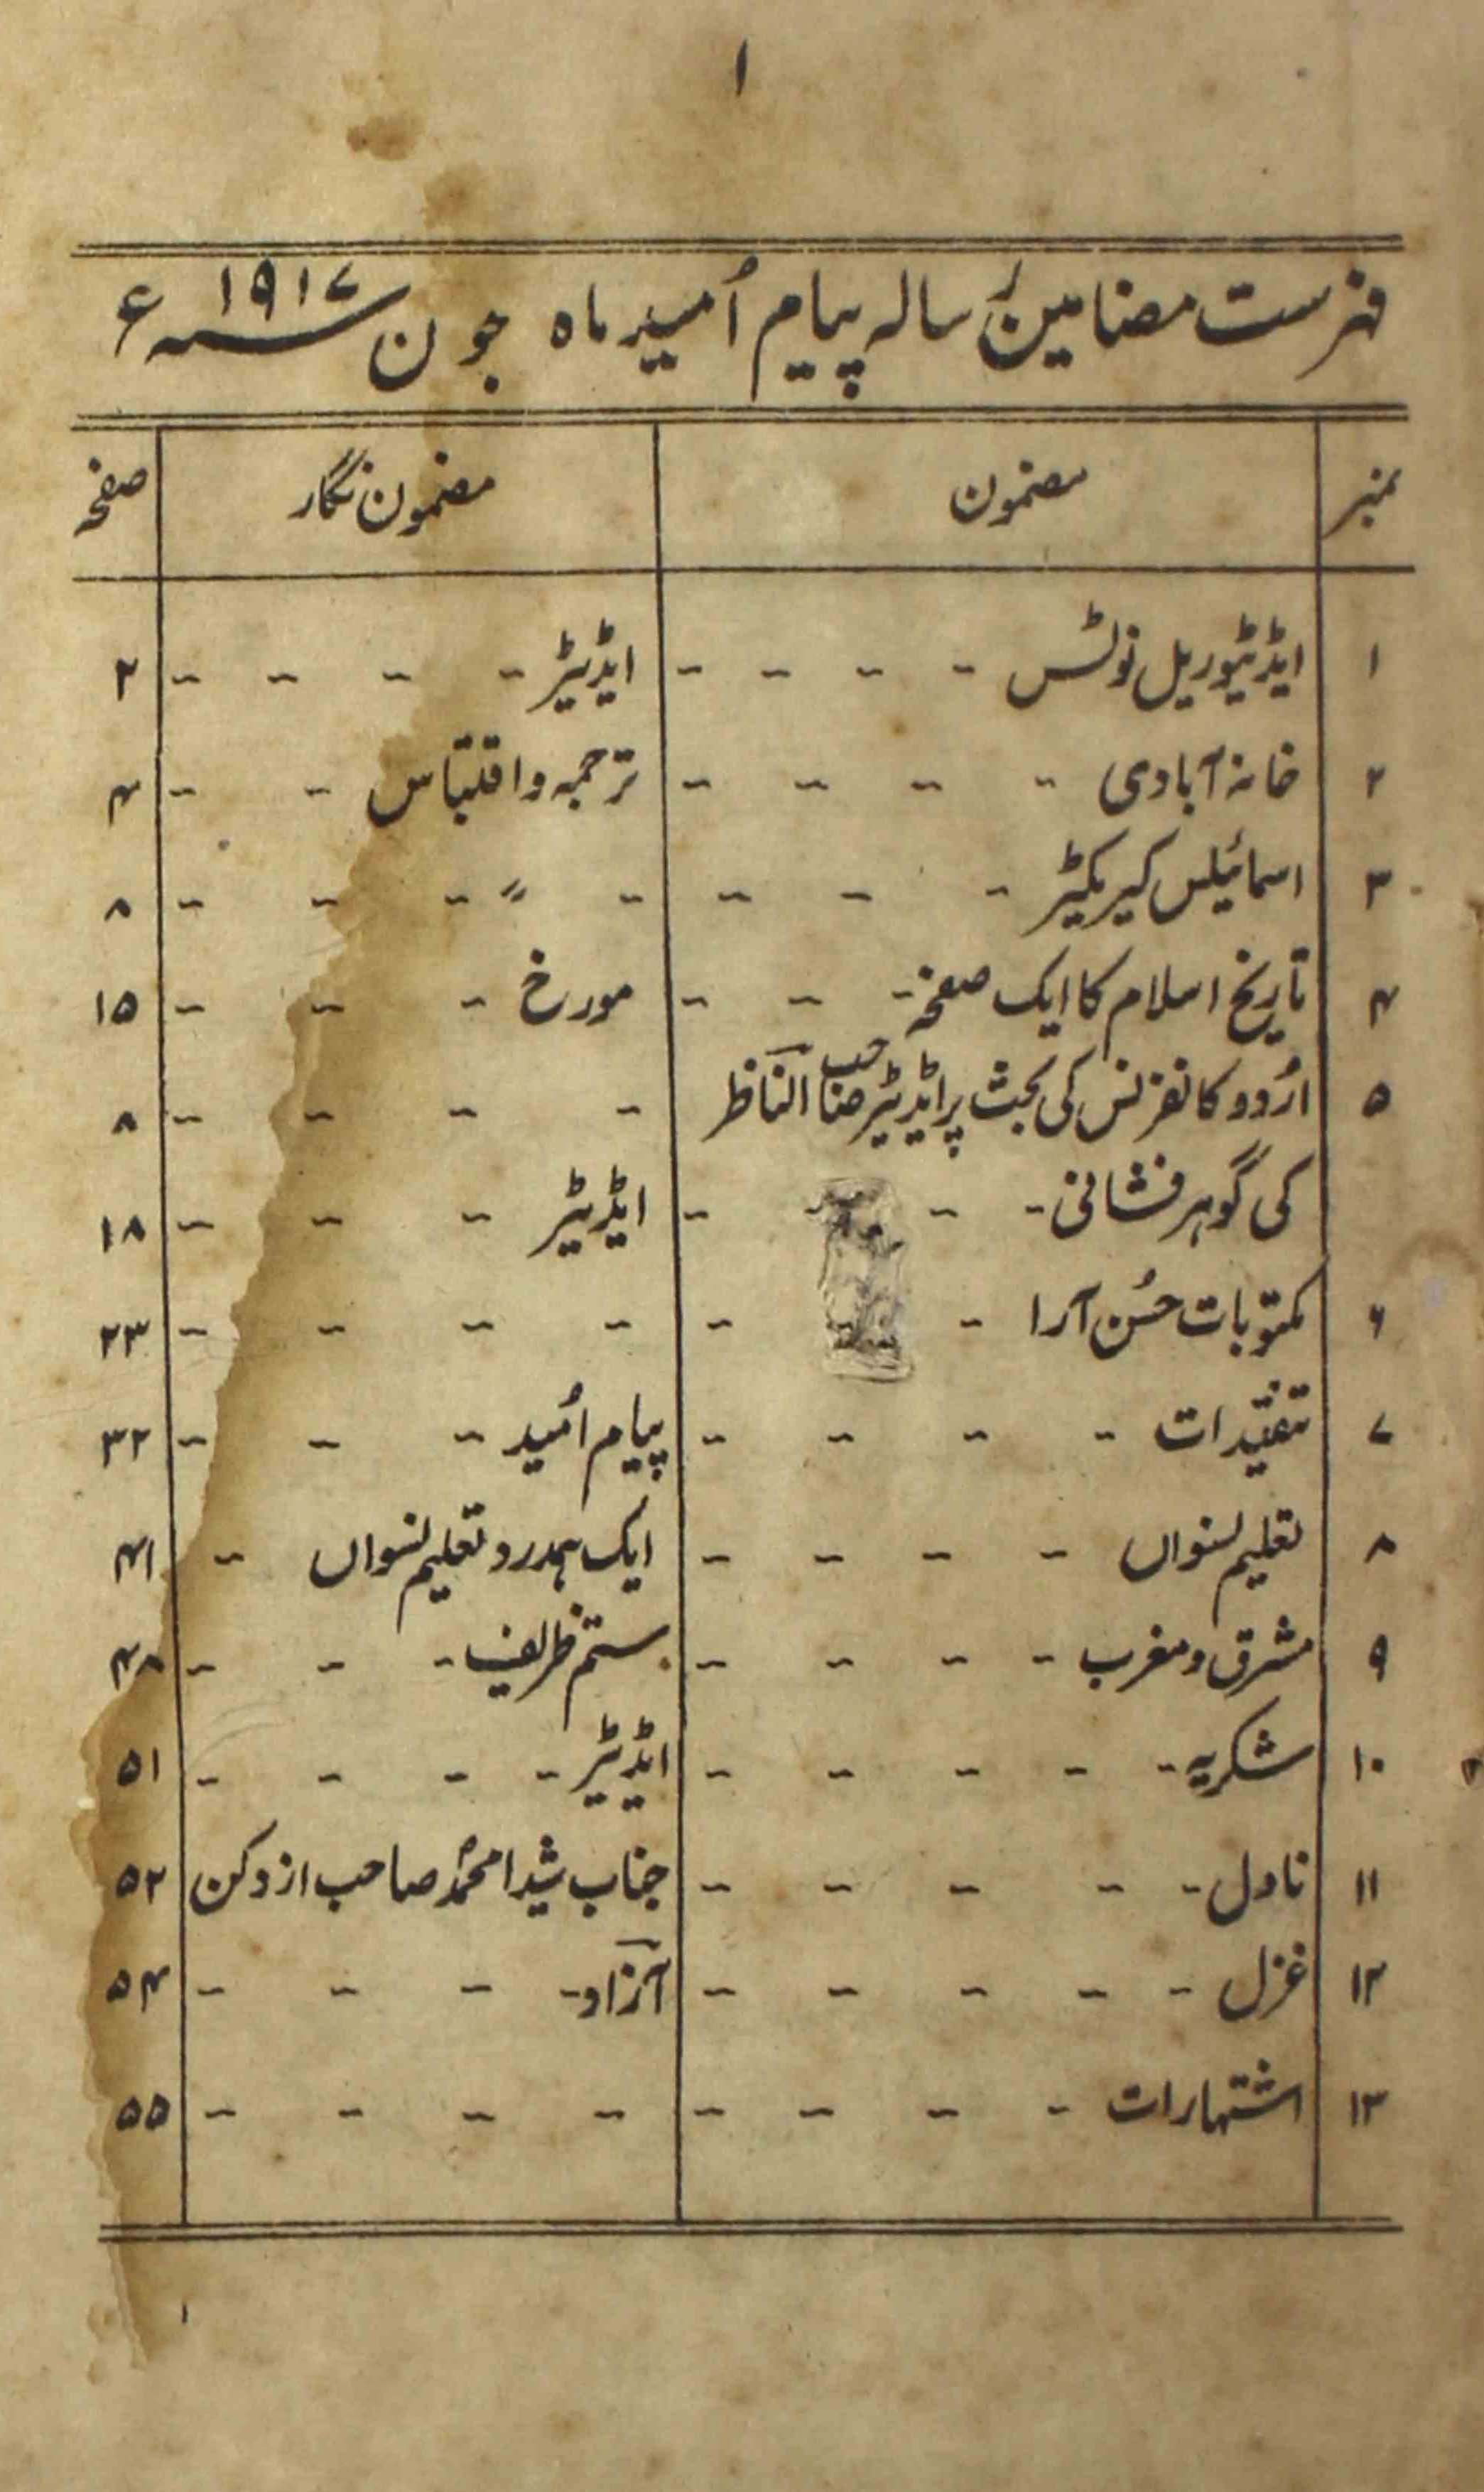 ۱
فہرست مضامین رسالہ پیام اُمید ماہ جون ۱۹۱۷ء
نمبر مضمون مضمون نگار صفحہ
۱ ایڈیٹوریل نوٹس - - - - ایڈیٹر - - - - ۲
۲ خانہ آبادی - - - - ترجمہ و اقتباس - - ۴
۳ اسمائیلس کیریکٹیر - - - - 〃 - - - ۸
۴ تاریخ اسلام کا ایک صفحہ - - - مورخ - - - ۱۵
۵ اُردو کانفرنس کی بحث پر ایڈیٹر صاحب الناظر - - - - ۸
کی گوہر فشانی - - - - ایڈیٹر - - - ۱۸
۶ مکتوبات حُسن آرا - - - - - - ۲۳
۷ تنقیدات - - - - پیام اُمید - - - ۳۲
۸ تعلیم نسواں - - - - ایک ہمدرد تعلیم نسواں - ۴۱
۹ مشرق و مغرب - - - - ستم ظریف - - - ۴۸
۱۰ شکریہ - - - - - ایڈیٹر - - - - ۵۱
۱۱ ناول - - - - - جناب شیدا محمدؐ صاحب از دکن ۵۲
۱۲ غزل - - - - - آزاد - - - - ۵۴
۱۳ اشتہارات - - - - - - - - ۵۵